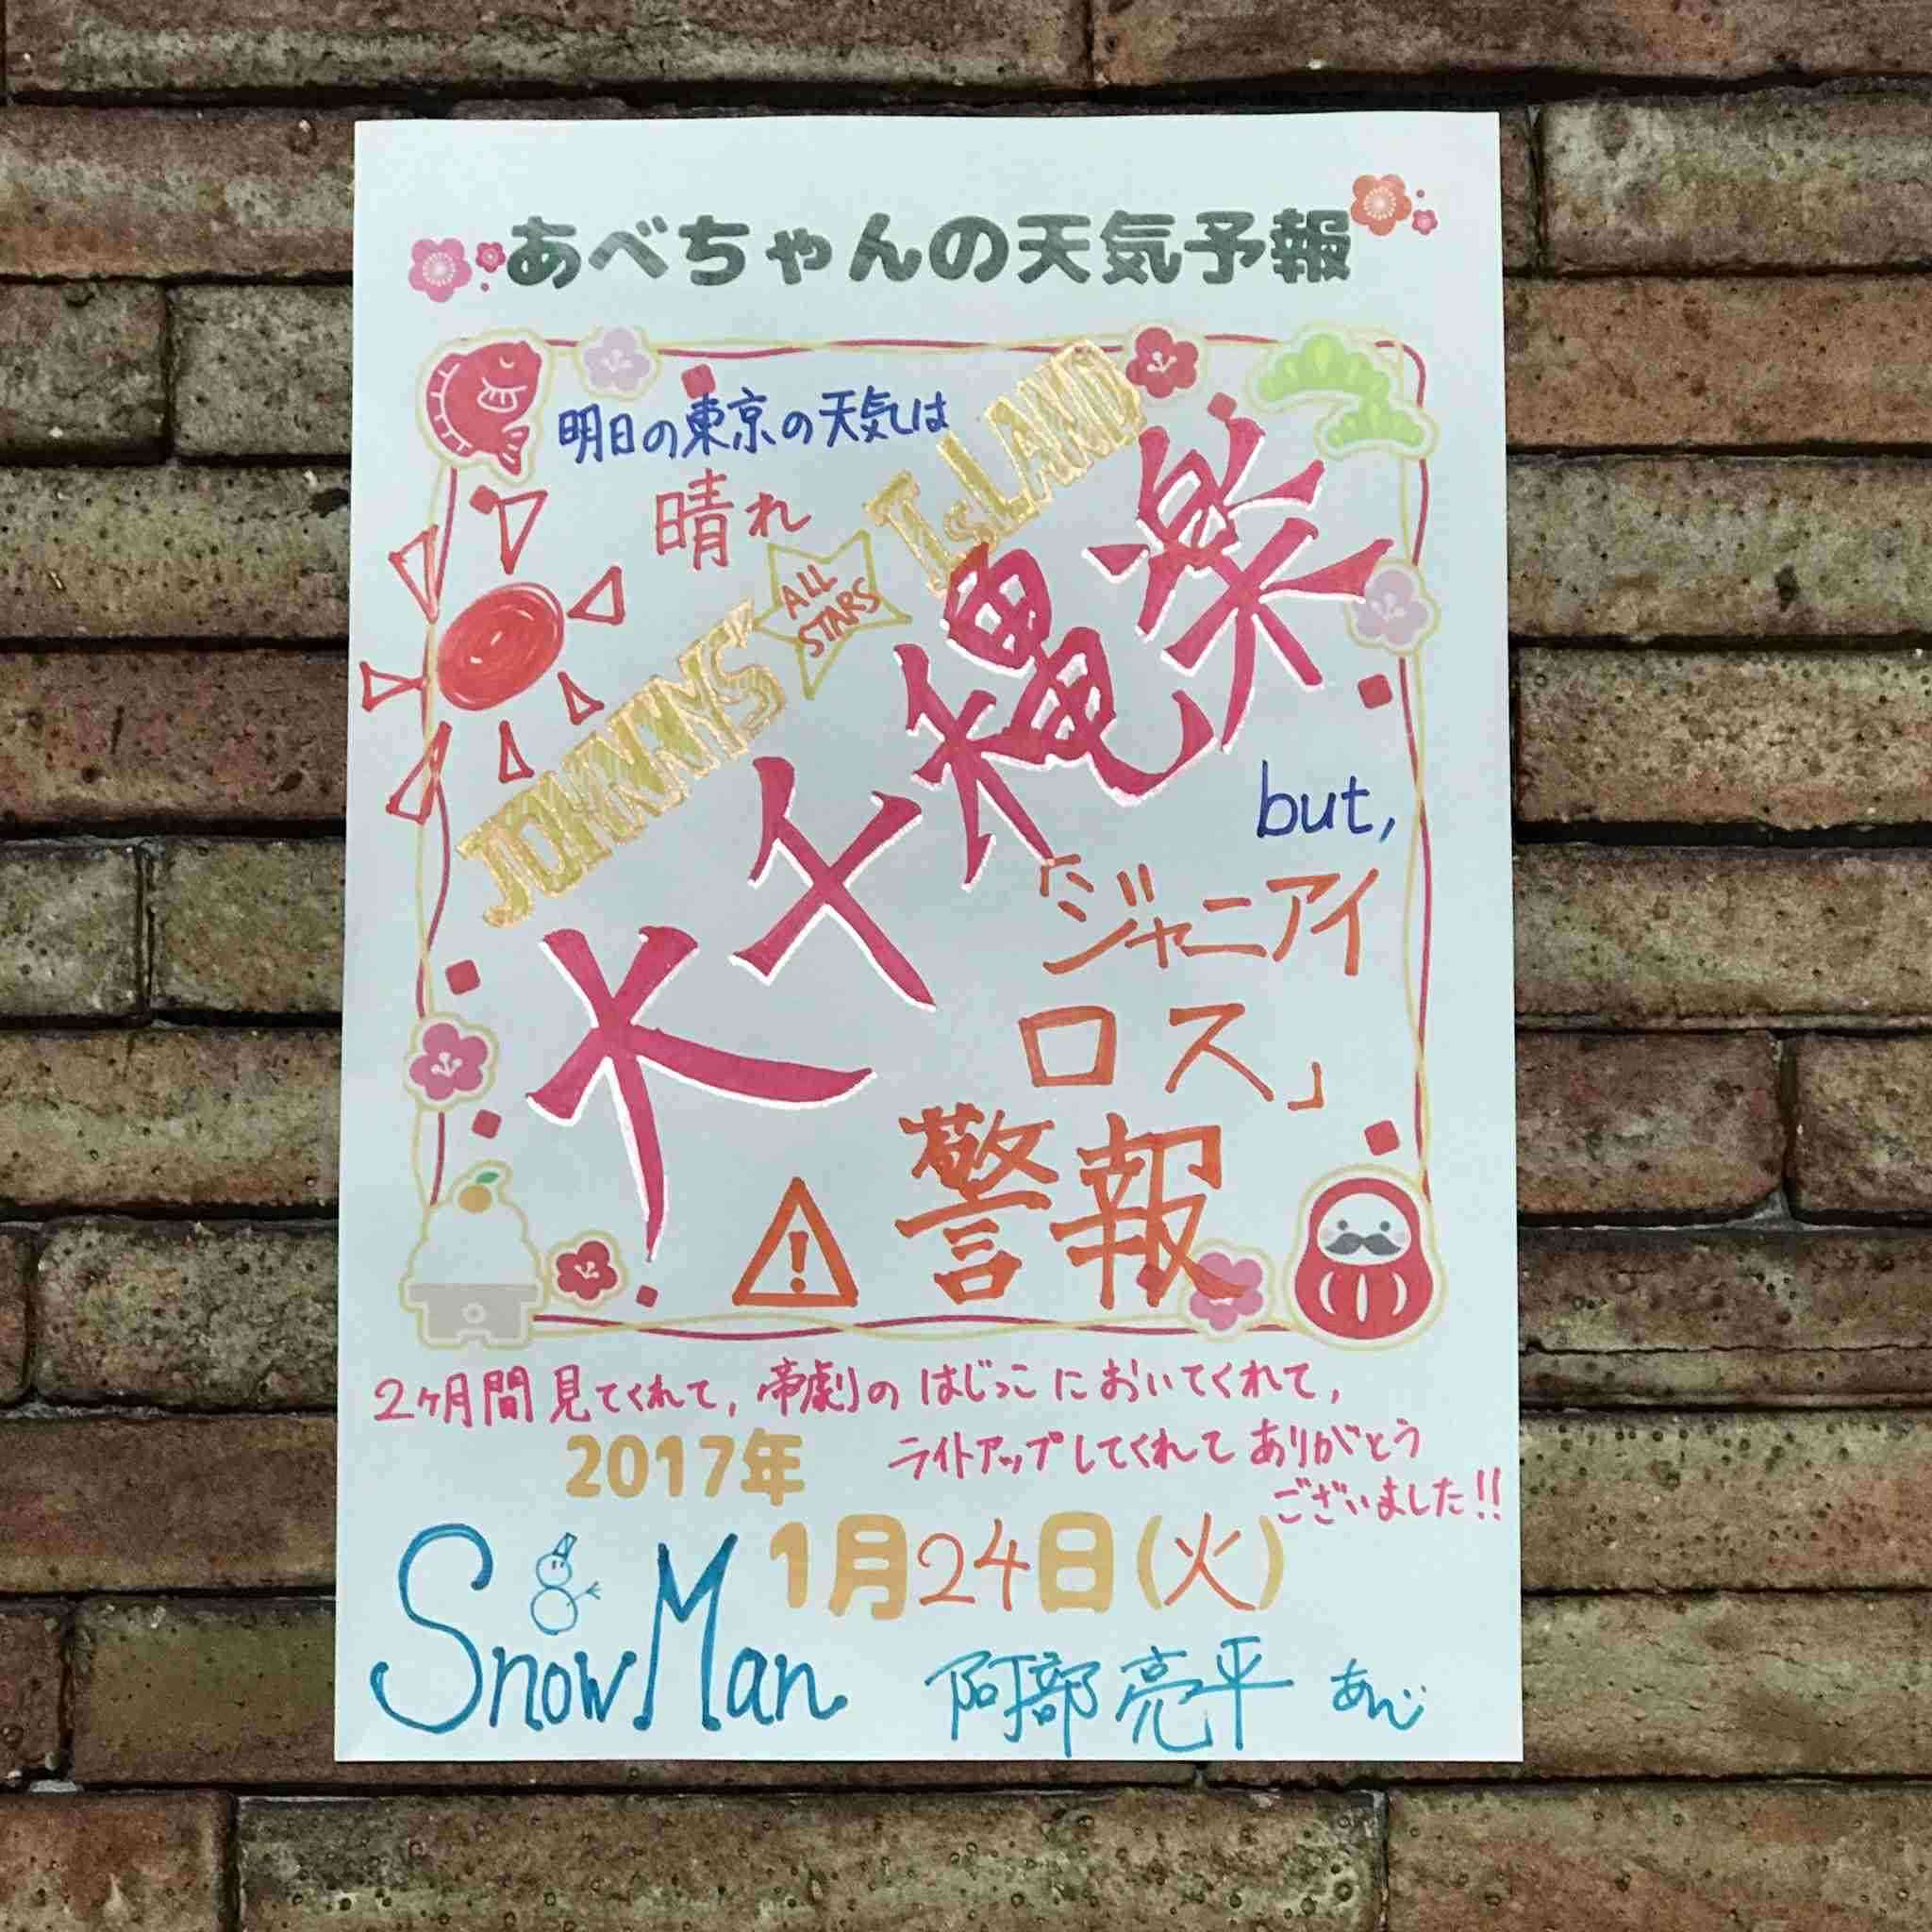 あべちゃんの天気予報
明日の東京の天気は
晴れ
JOHNNYS' ALL STARS IsLAND
大千穐楽
but,
「ジャニアイ
ロス」
警報
2ヶ月間見てくれて,帝劇のはじっこにおいてくれて,
ライトアップしてくれてありがとう
ございました!!
2017年
1月24日(火)
Snow Man
阿部亮平 あべ